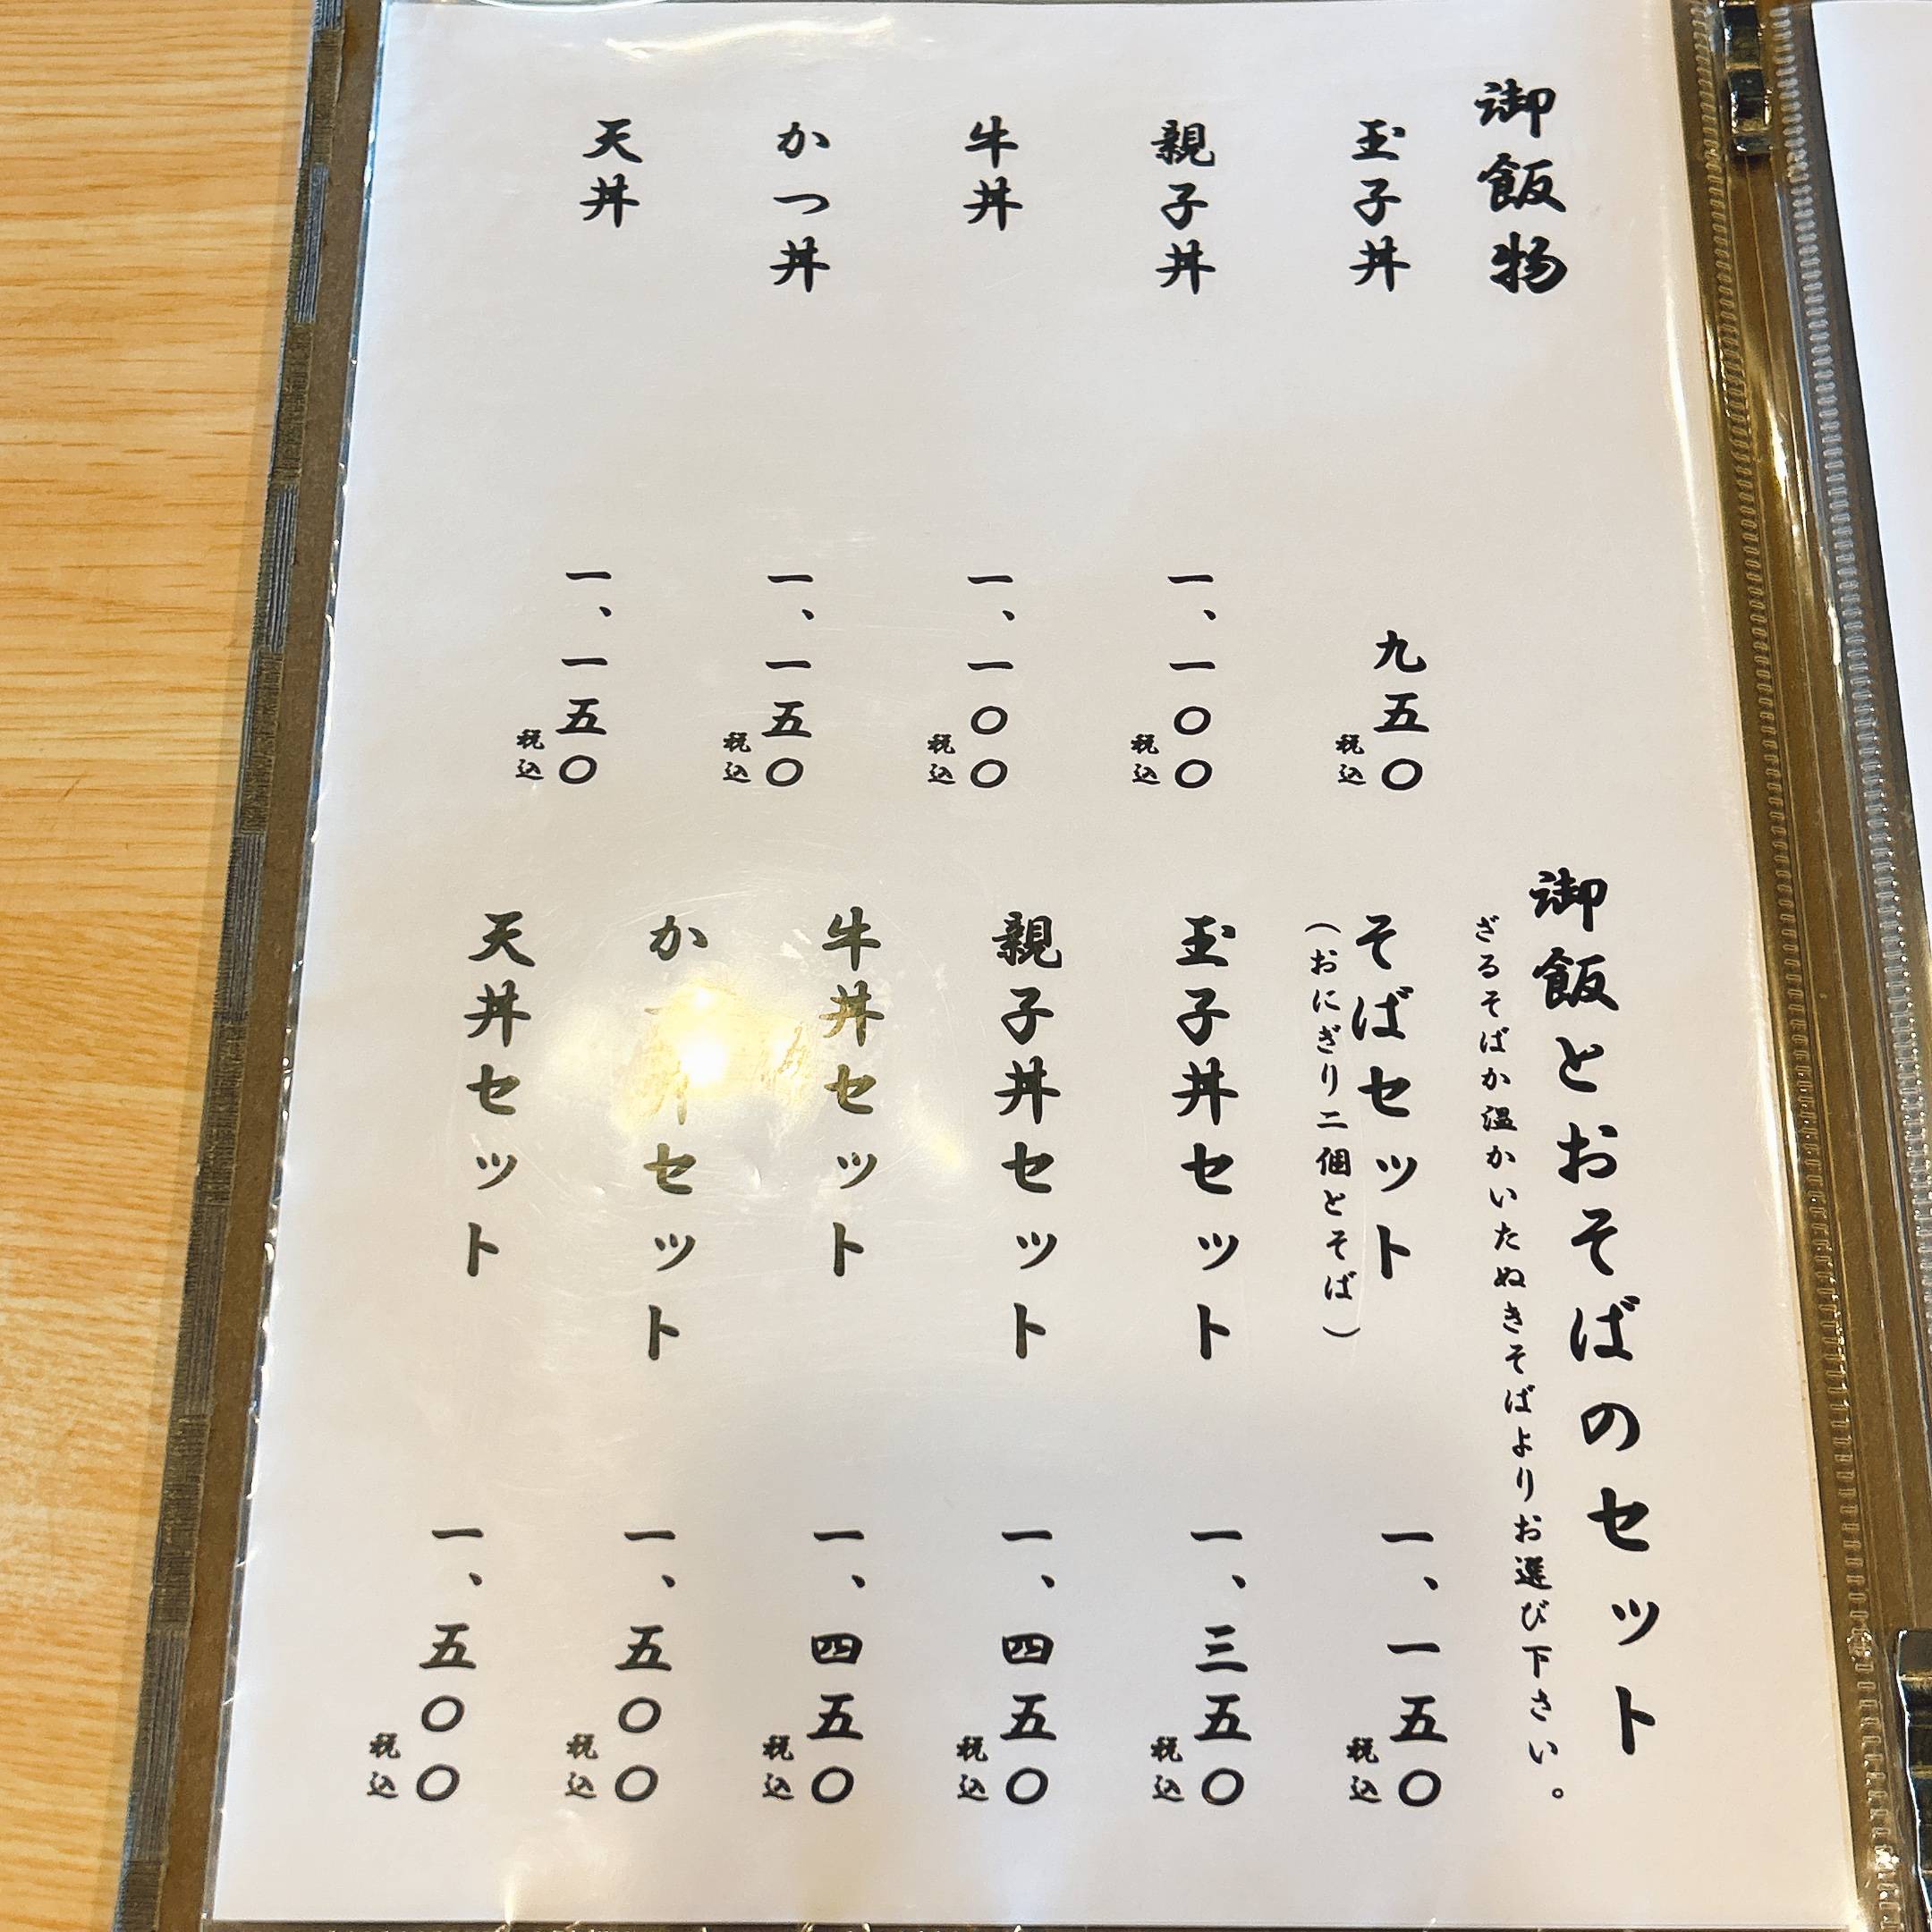 御飯物
玉子丼
九五〇
税込
親子丼
一、一〇〇
税込
牛丼
一、一〇〇
税込
かつ丼
一、一五〇
税込
天丼
一、一五〇
税込
御飯とおそばのセット
ざるそばか温かいたぬきそばよりお選び下さい。
そばセット
(おにぎり二個とそば)
一、一五〇
税込
玉子丼セット
一、三五〇
税込
親子丼セット
一、四五〇
税込
牛丼セット
一、四五〇
税込
かつ丼セット
一、五〇〇
税込
天丼セット
一、五〇〇
税込